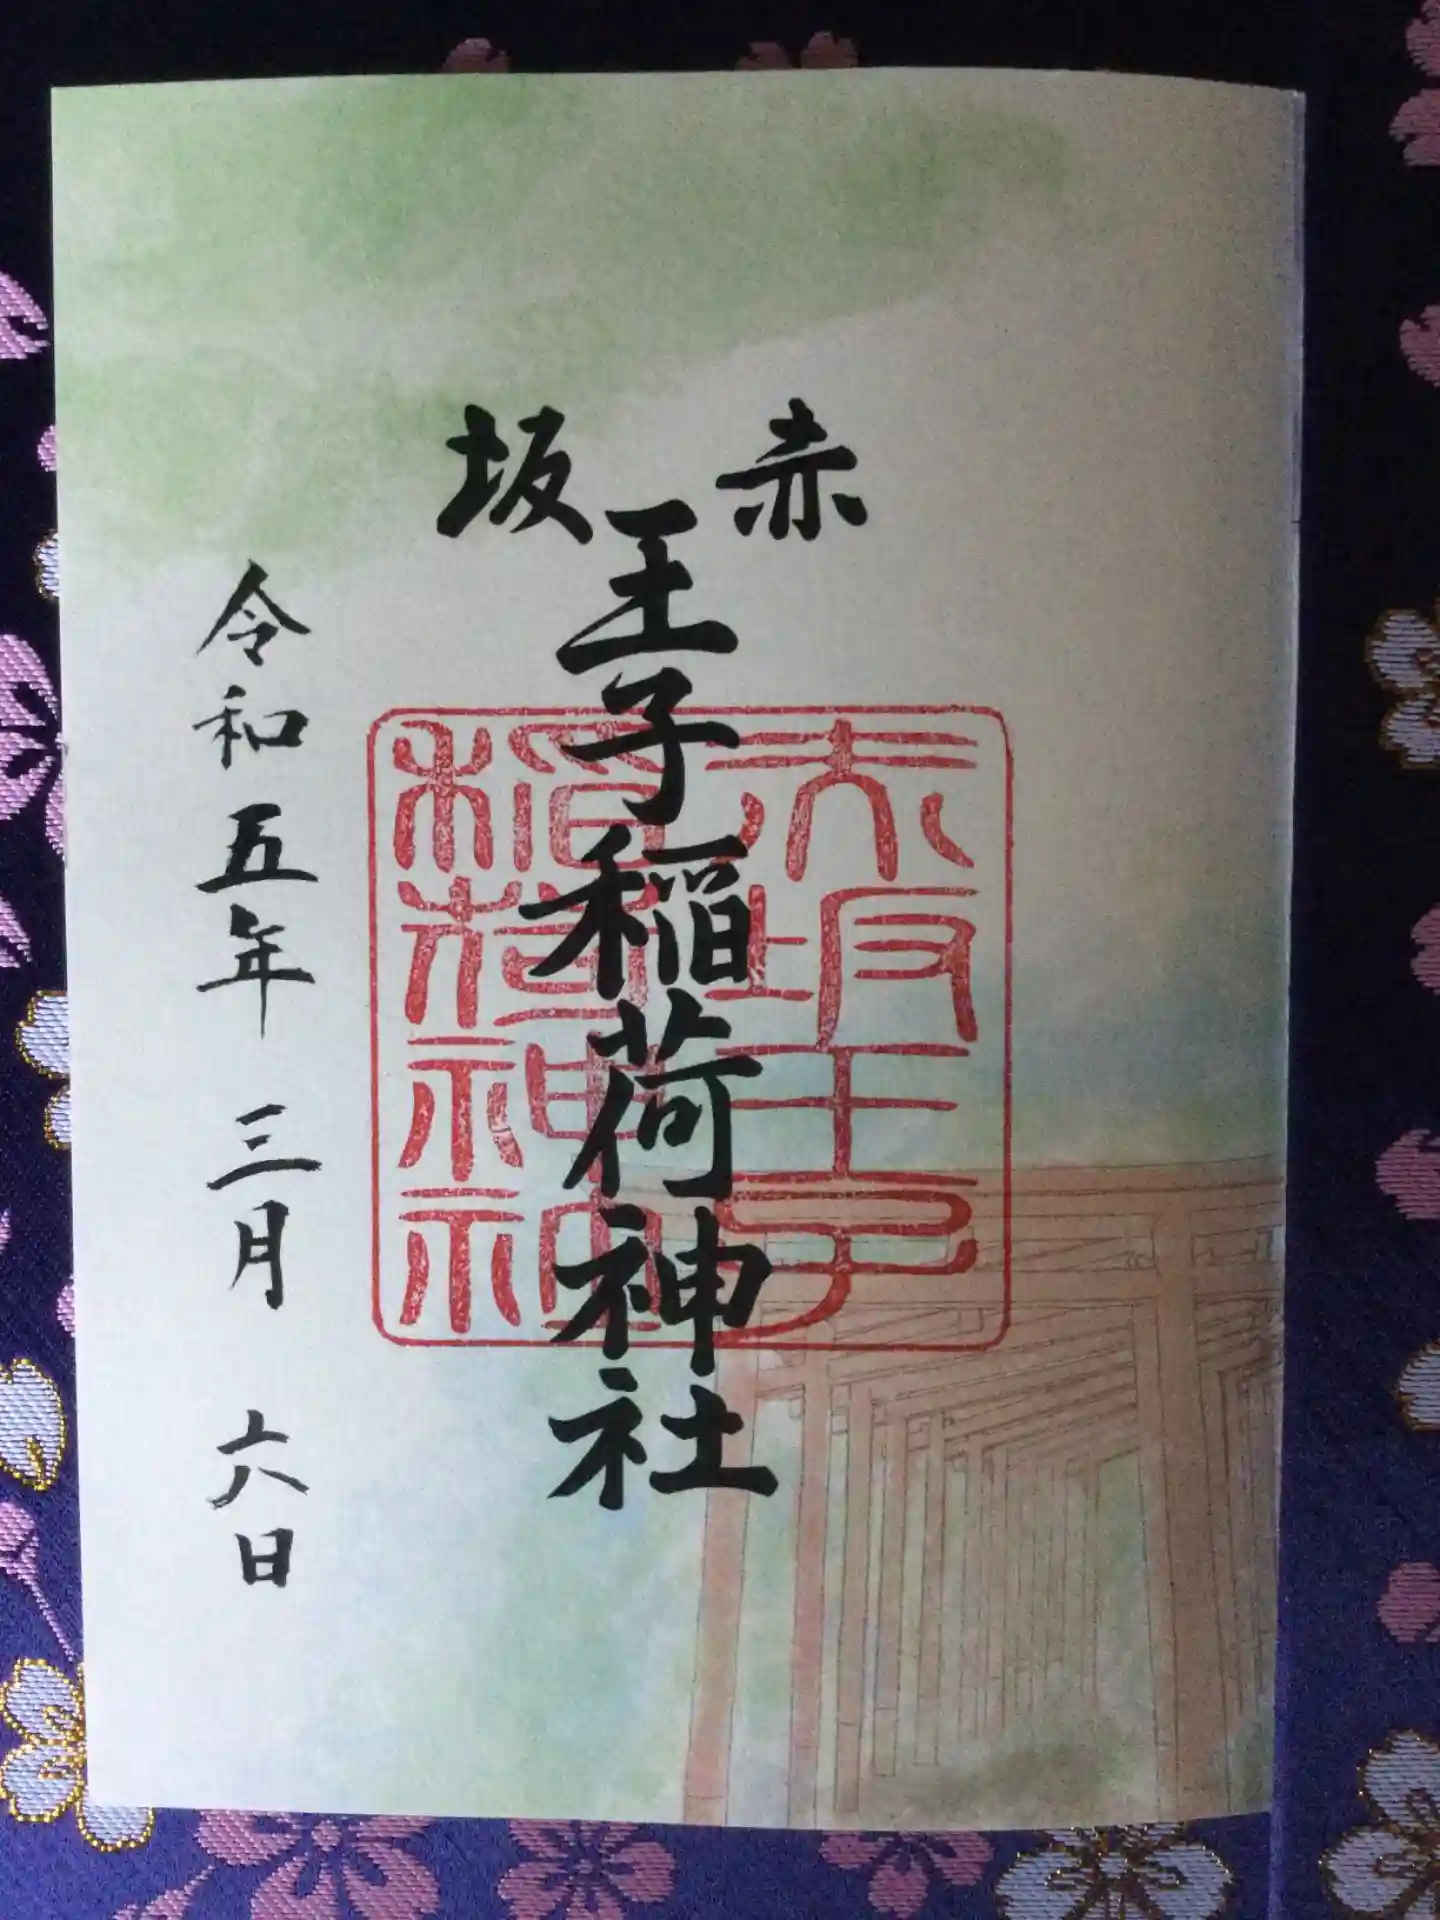 赤坂
王子稲荷神社
赤坂王子
稲荷神社
令和五年三月六日